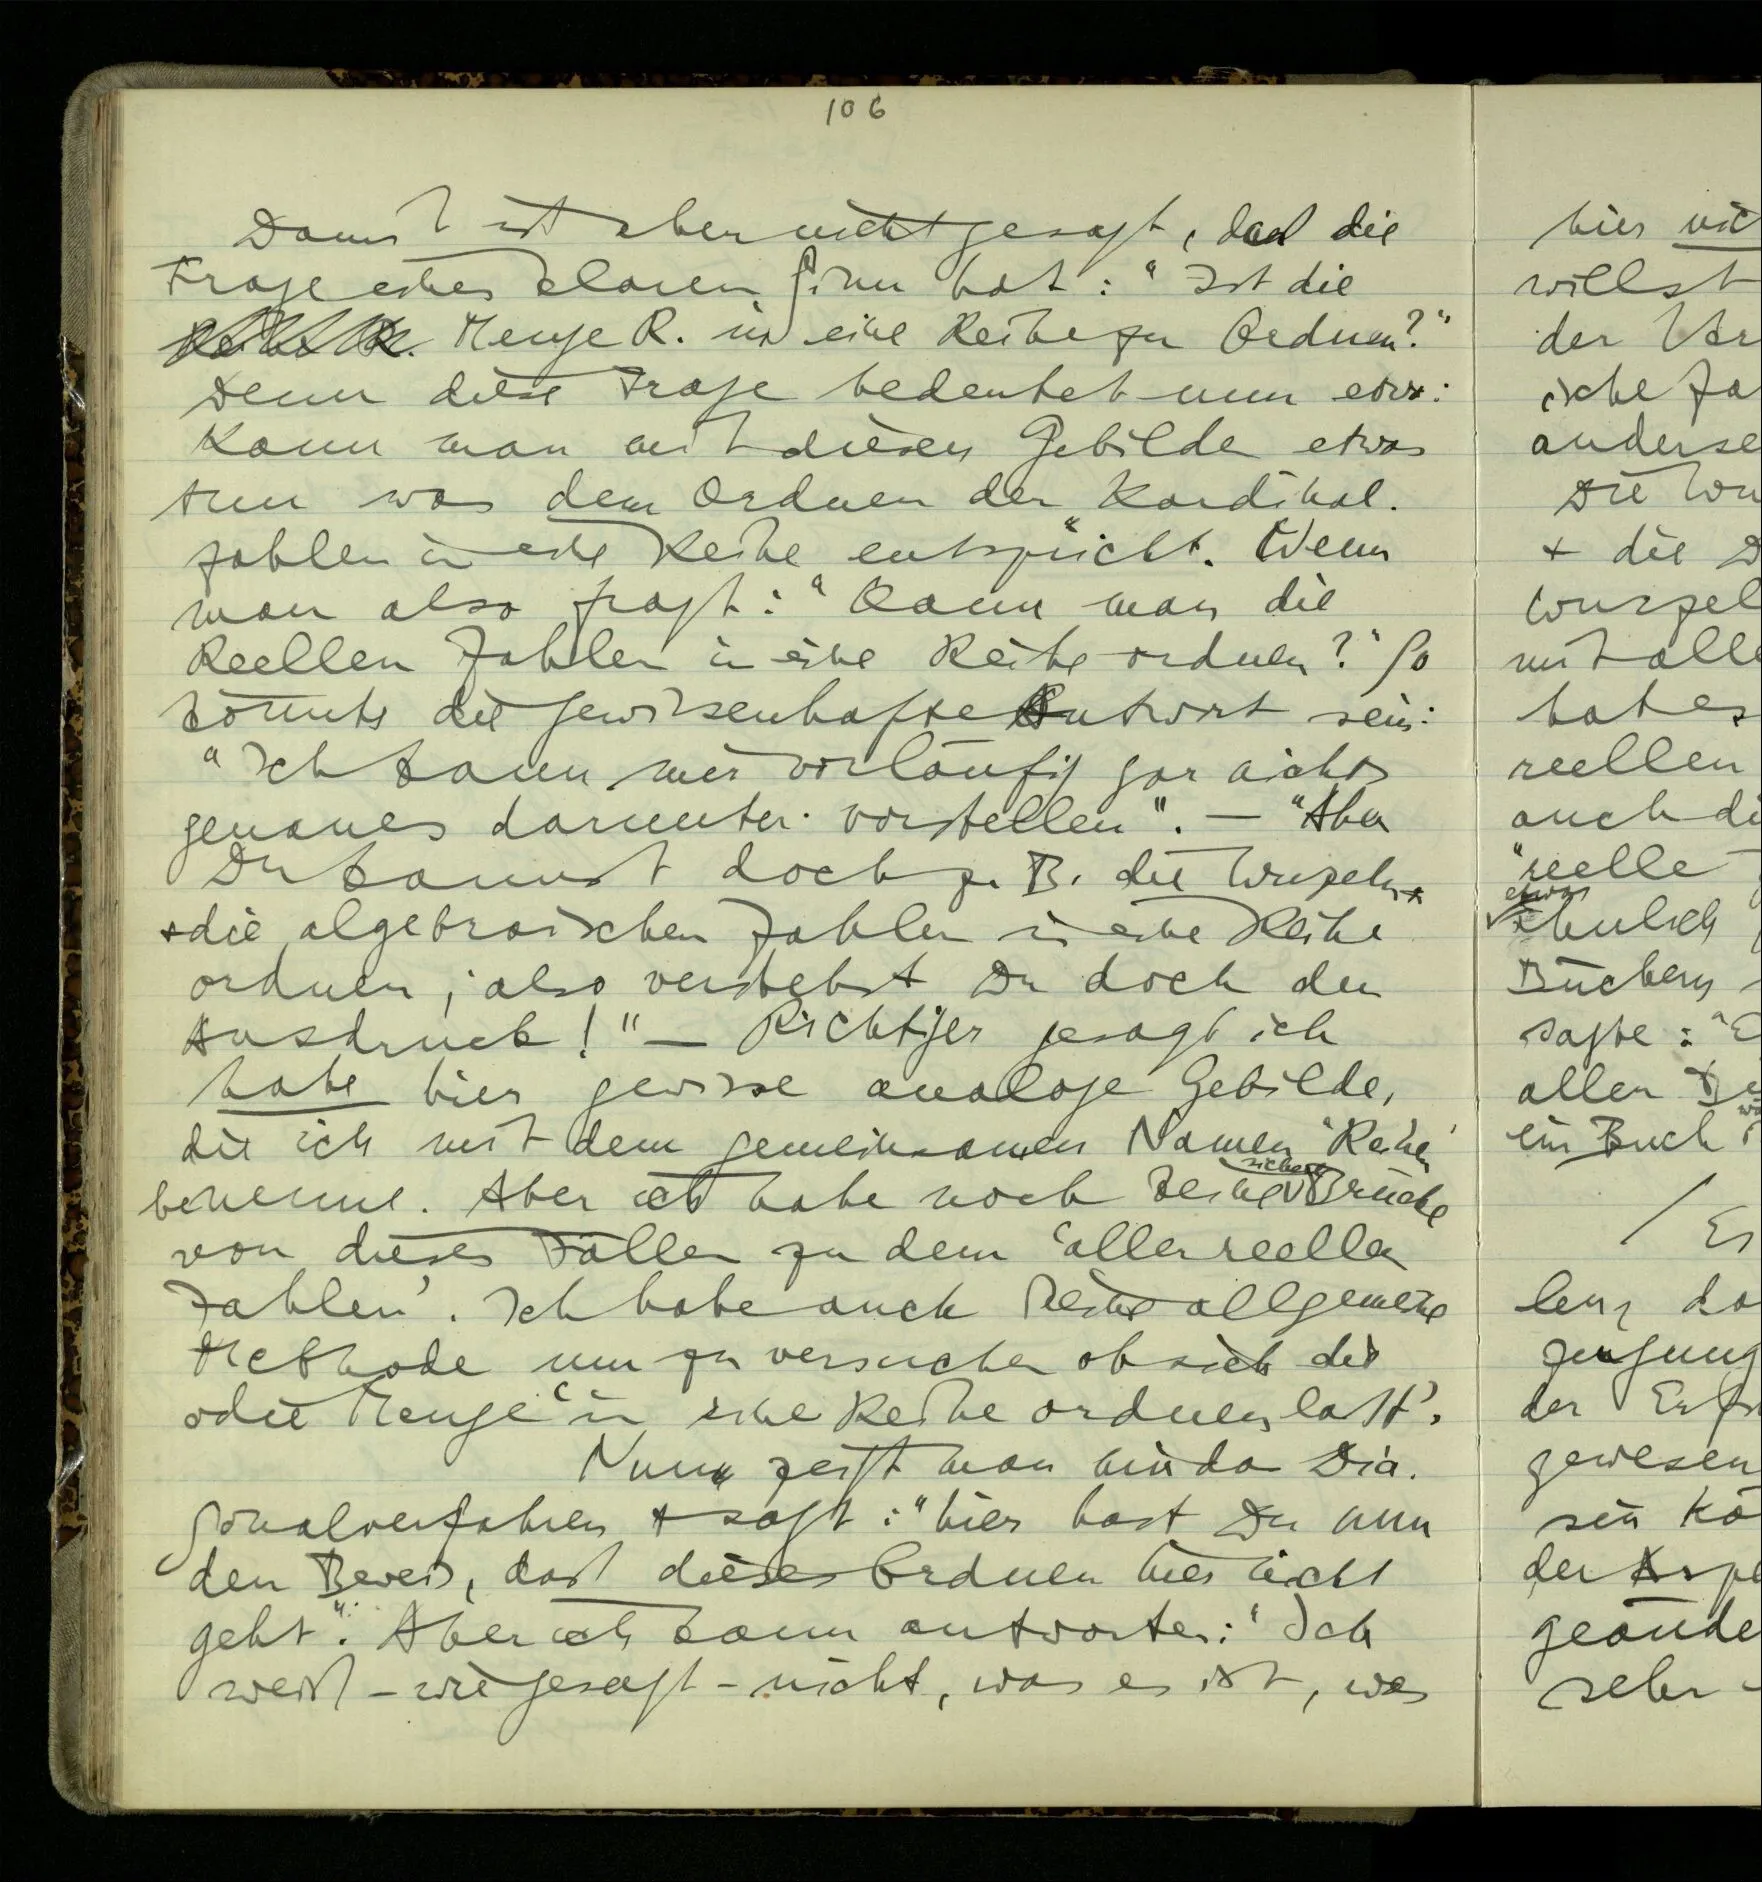 106
Damit ist aber nicht gesagt, daß die
Frage einen klaren Sinn hat: "Ist die
Menge R. in eine Reihe zu Ordnen?"
Denn diese Frage bedeutet nun etwa:
Kann man mit diesen Gebilden etwas
tun was dem Ordnen der Kardinal-
zahlen in eine Reihe entspricht. Wenn
man also fragt: "Kann man die
Reellen Zahlen in eine Reihe ordnen?" So
könnte die gewissenhafte Antwort sein:
"Ich kann mir vorläufig gar nichts
genaues darunter vorstellen". — "Aber
Du kannst doch z. B. die Wurzeln
+ die algebraischen Zahlen in eine Reihe
ordnen; also verstehst Du doch den
Ausdruck!" — Richtiger gesagt ich
habe hier gewisse analoge Gebilde,
die ich mit dem gemeinsamen Namen 'Reihen'
benenne. Aber ich habe noch keine sichere Brücke
von diesen Fällen zu dem 'aller reellen
Zahlen'. Ich habe auch keine allgemeine
Methode um zu versuchen ob sich die
o die Menge 'in eine Reihe ordnen läßt'.
Nun zeigt man mir das Dia-
gonalverfahren + sagt: "hier hast Du nun
den Beweis, daß dieses Ordnen hier nicht
geht". Aber ich kann antworten: "Ich
weiß – wie gesagt – nicht, was es ist, was
hier nic
willst
der Ver
ische Za
anderse
Die Wu
+ die D
Wurzel
mit alle
hat es
reellen
auch di
"reelle
etwas
ähnlich
Büchern
sagte: "E
allen Be
ein Buch
/ Es
lenz da
gewesen
sein kö
der Aspe
geände
sehr